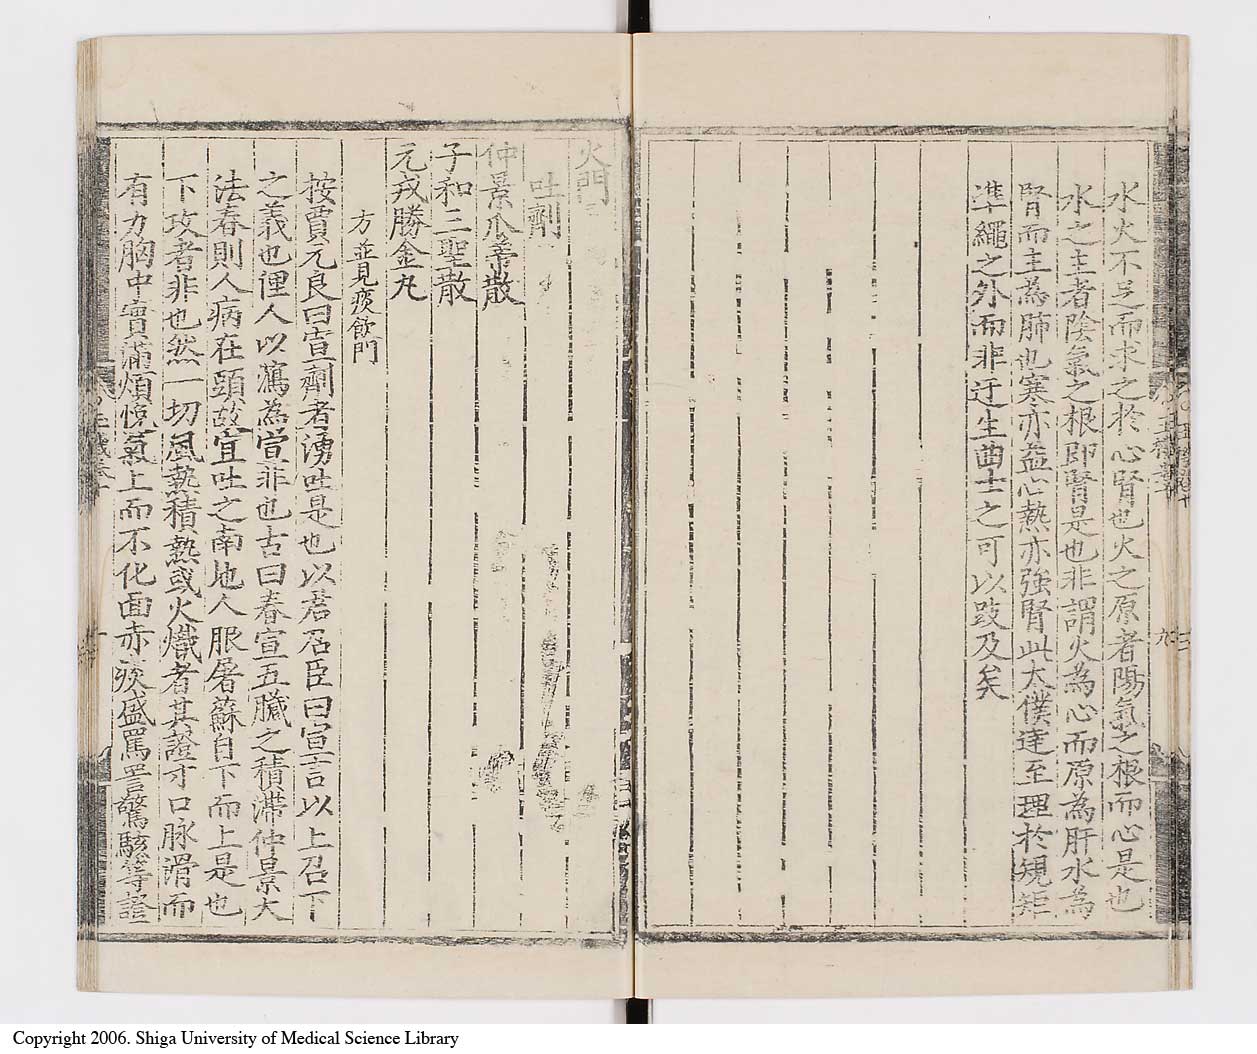 水火不足而求之於心腎也火之原者陽氣之根而心是也
水之主者陰氣之根即腎是也非謂火為心而原為肝水為
腎而主為肺也寒亦益心熱亦強腎此太僕達至理於規矩
準繩之外而非迂生曲士之可以跂及矣
火門
吐劑
仲景瓜蒂散
子和三聖散
元戎勝金丸
方並見痰飲門
按賈元良曰宣劑者湧吐是也以君召臣曰宣言以上召下
之義也俚人以瀉為宣非也古曰春宣五臟之積滯仲景大
法春則人病在頭故宜吐之南地人服屠蘇自下而上是也
下攻者非也然一切風熱積熱或火熾者其證寸口脉滑而
有力胸中實滿煩悗氣上而不化面赤痰盛罵詈驚駭等證
Copyright 2006. Shiga University of Medical Science Library